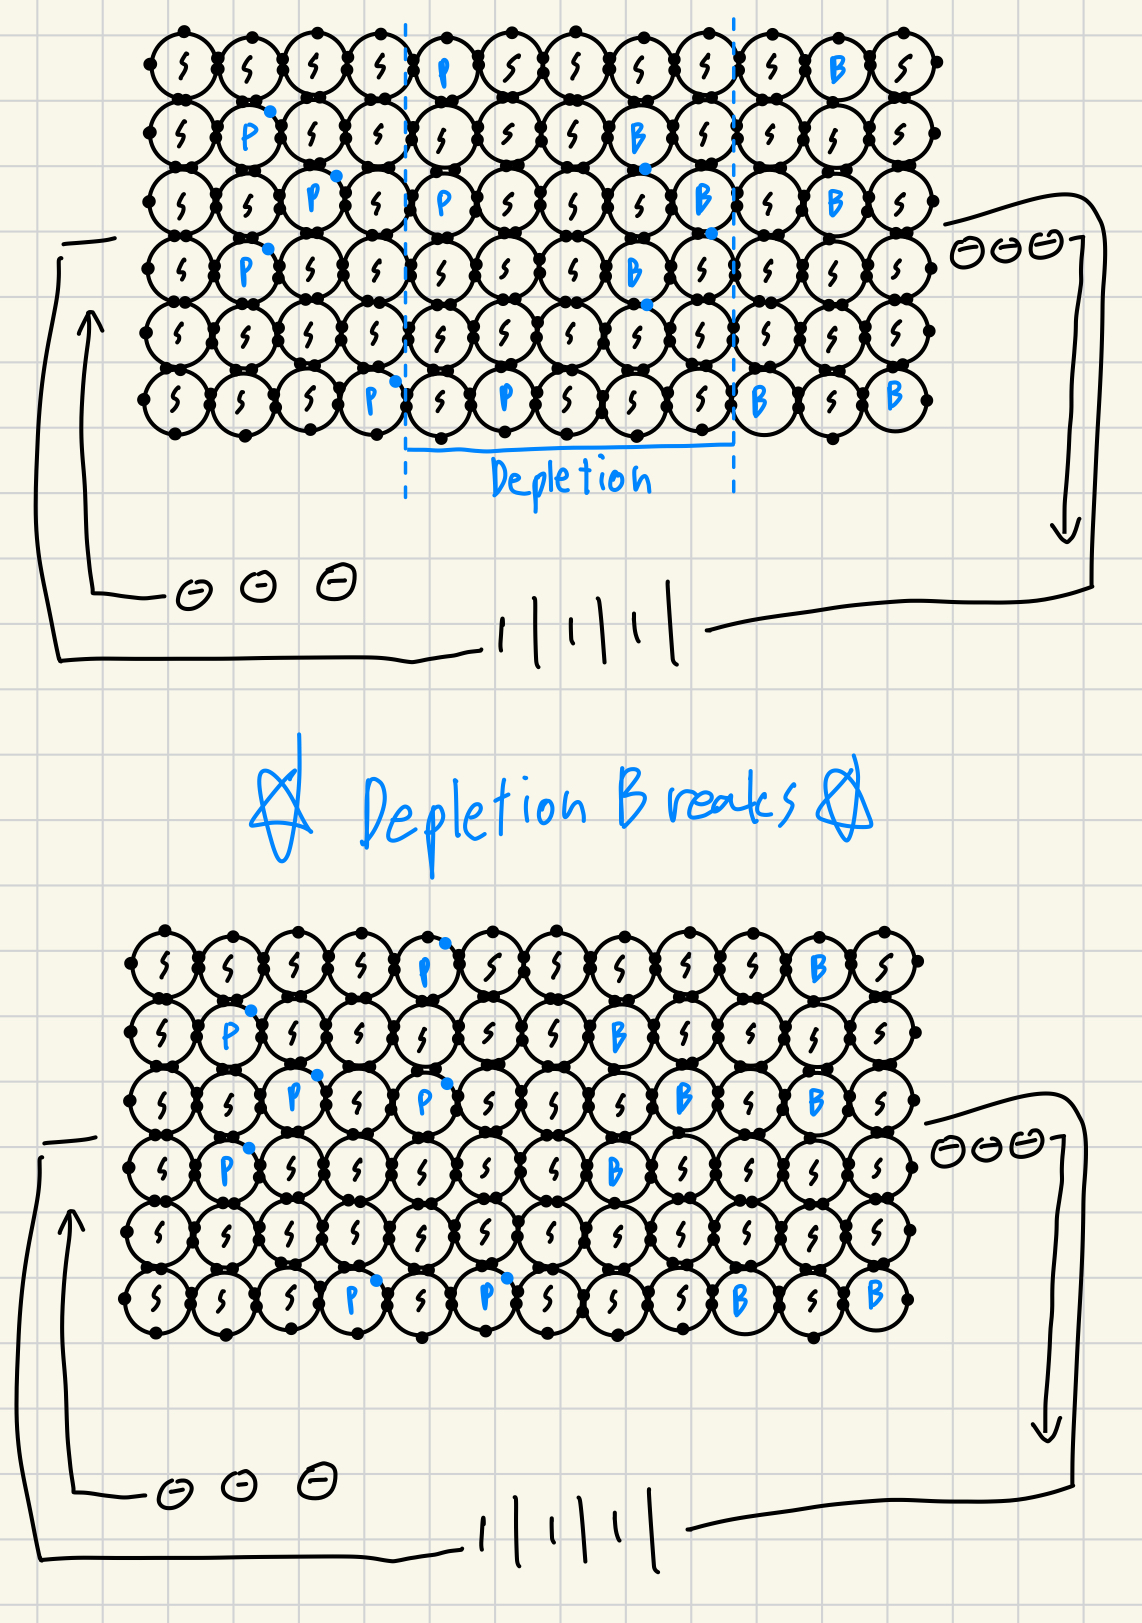 S S S S P S S S S S B S
S P S S S S S B S S S S
S S P S P S S S B S B S
S P S S S S S B S S S S
S S S S S S S S S S S S
S S S P S P S S S B S B
Depletion
Depletion Breaks
S S S S P S S S S S B S
S P S S S S S B S S S S
S S P S P S S S B S B S
S P S S S S S B S S S S
S S S S S S S S S S S S
S S S P S P S S S B S B